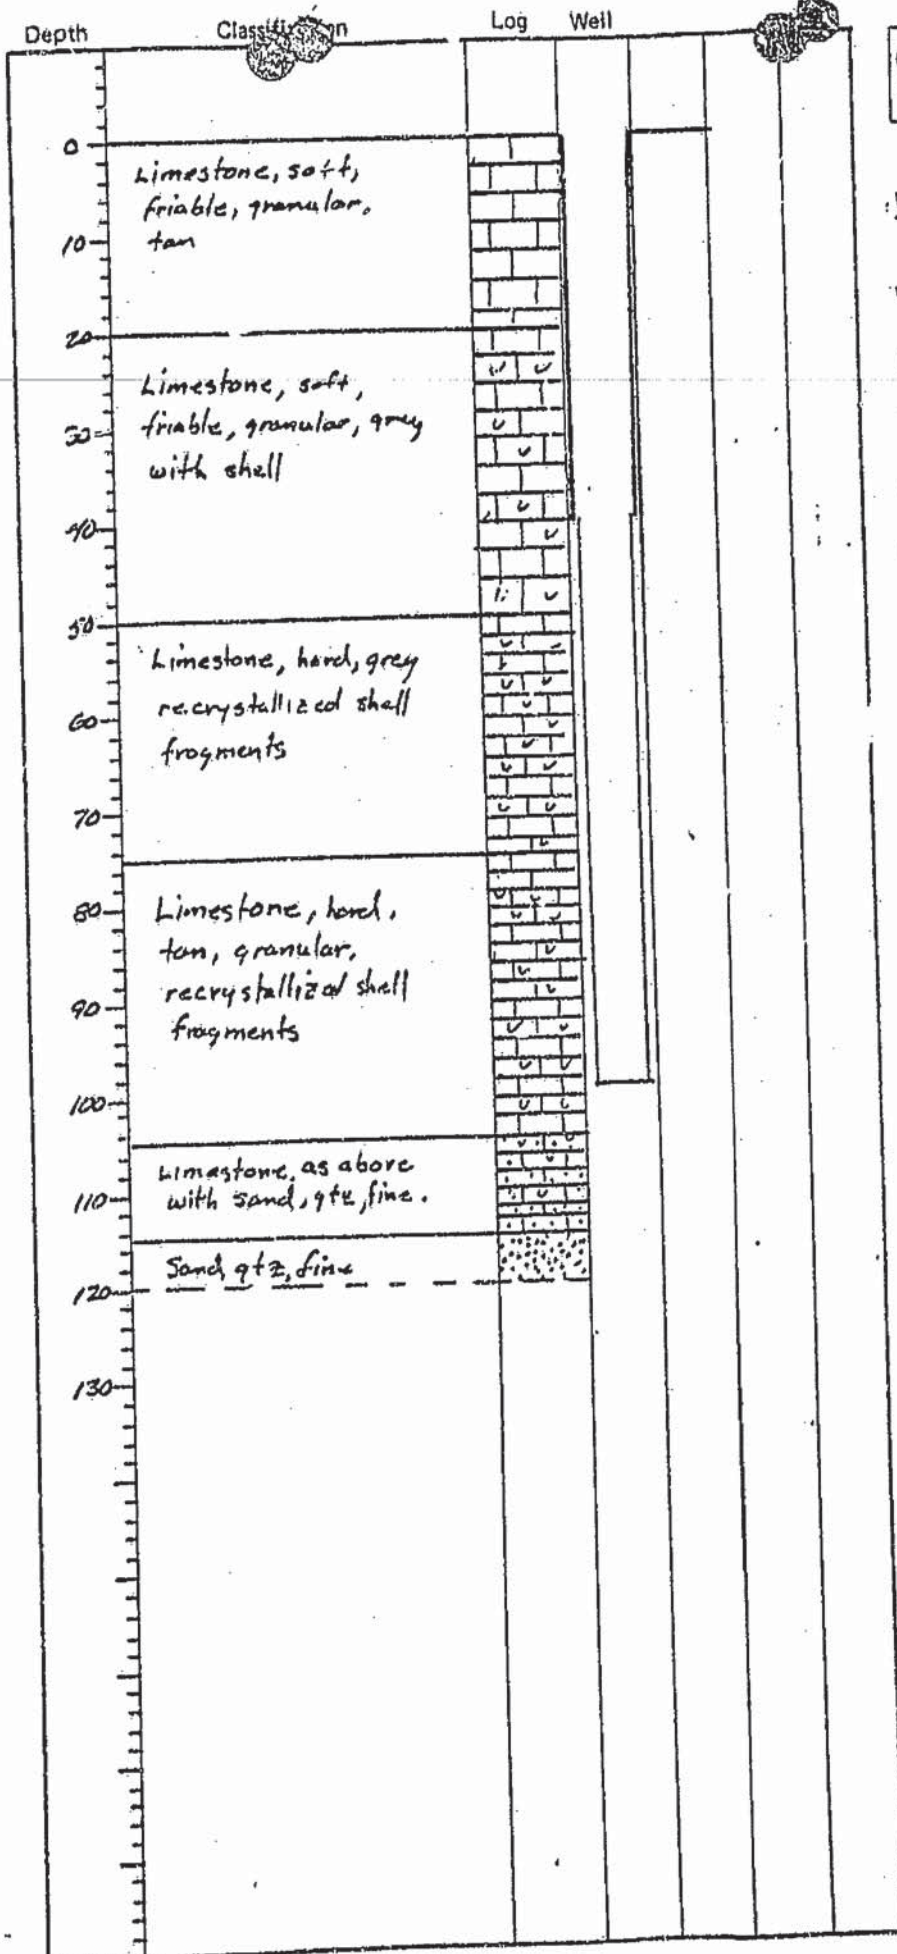 Depth Classification Log Well
0
Limestone, soft,
friable, granular,
tan
10
20
Limestone, soft,
friable, granular, grey
with shell
30
40
50
Limestone, hard, grey
recrystallized shell
fragments
60
70
80
Limestone, hard,
tan, granular,
recrystallized shell
fragments
90
100
Limestone, as above
with sand, qtz, fine.
110
Sand, qtz, fine
120
130